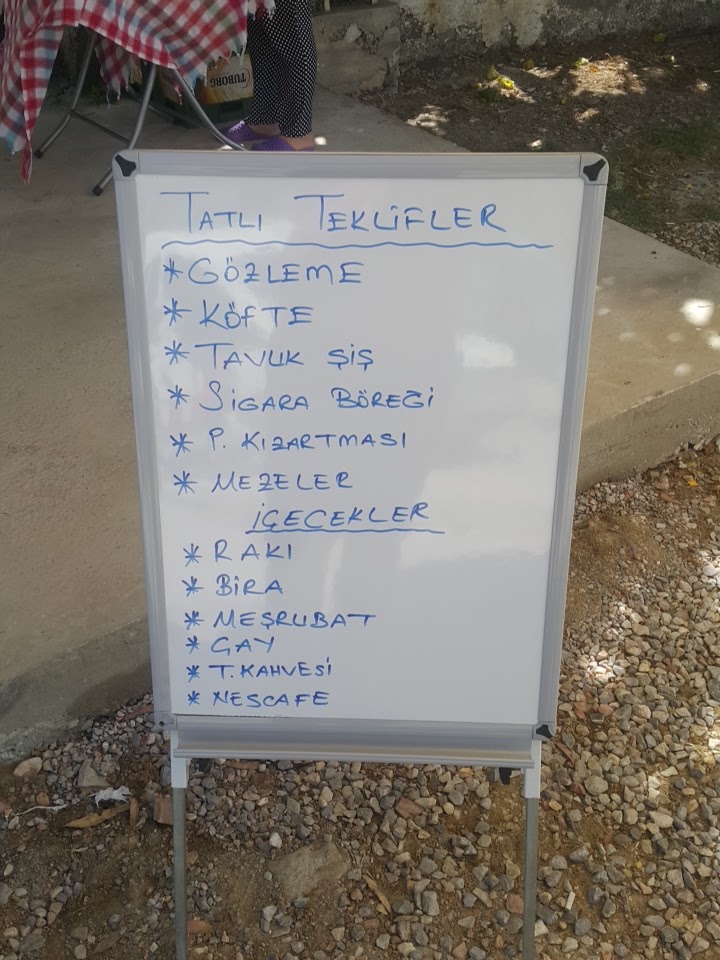 TUBORG
TATLI TEKLİFLER
* GÖZLEME
* KÖFTE
* TAVUK ŞİŞ
* SİGARA BÖREĞİ
* P. KIZARTMASI
* MEZELER
İÇECEKLER
* RAKI
* BİRA
* MEŞRUBAT
* ÇAY
* T. KAHVESİ
* NESCAFE